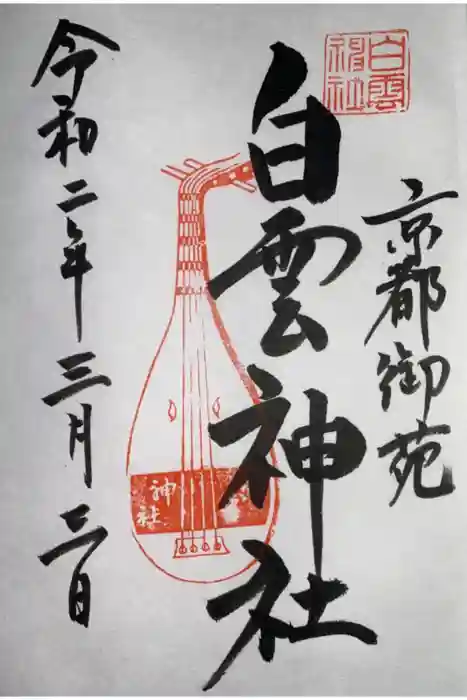 白雲
神社
京都御苑
白雲神社
神社
令和二年三月三日